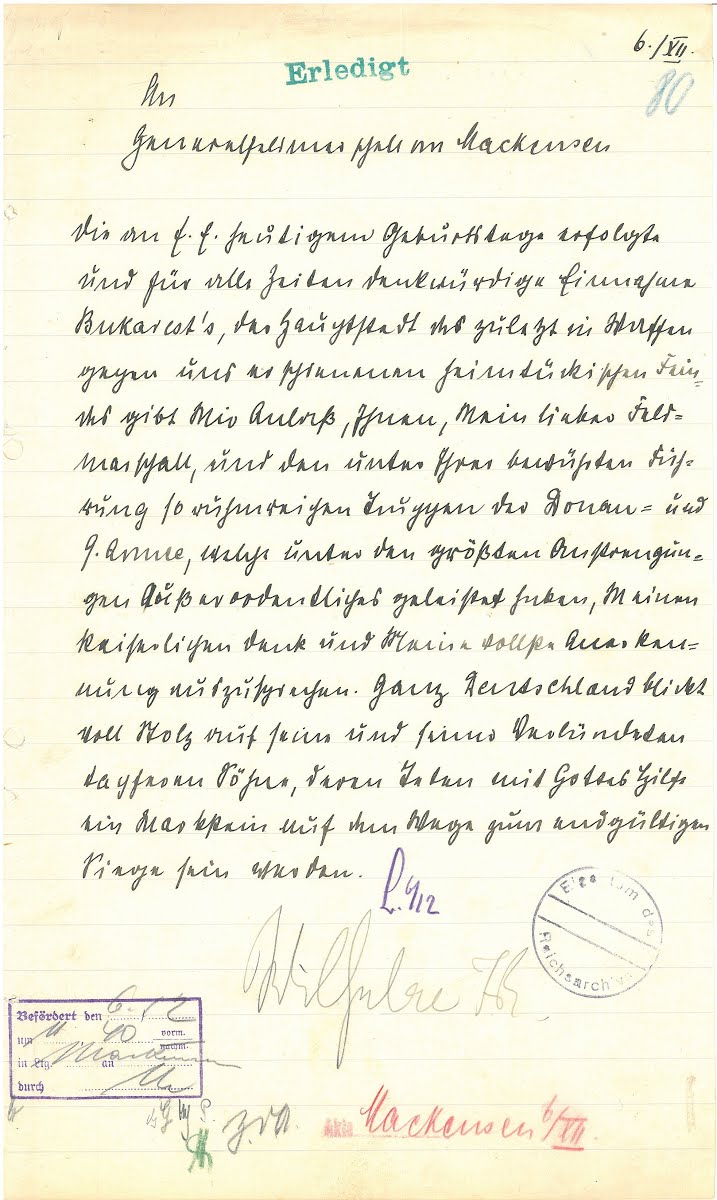 6./XII.
Erledigt
80
An
Generalfeldmarschall von Mackensen
Die an E. E. heutigem Geburtstage erfolgte
und für alle Zeiten denkwürdige Einnahme
Bukarest's, der Hauptstadt des zuletzt in Waffen
gegen uns erschienenen heimtückischen Fein=
des gibt Mir Anlaß, Ihnen, Mein lieber Feld=
marschall, und den unter Ihrer bewährten Füh=
rung so ruhmreichen Truppen der Donau= und
9. Armee, welche unter den größten Anstrengun=
gen Außerordentliches geleistet haben, Meinen
Kaiserlichen Dank und Meine vollste Anerken=
nung auszusprechen. Ganz Deutschland blickt
voll Stolz auf seine und seiner Verbündeten
tapferen Söhne, deren Taten mit Gottes Hilfe
ein Markstein auf dem Wege zum endgültigen
Siege sein werden.
L. 6/12
Wilhelm I.R.
Eigentum des
Reichsarchivs
Befördert den 6./12
um 11 40 vorm.
nachm.
in Ltg. Mackensen an
durch
z.d.A.
Akte Mackensen 6/XII.